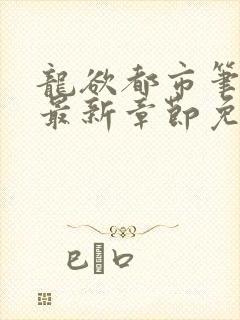 龍欲都市筆
最新章節免